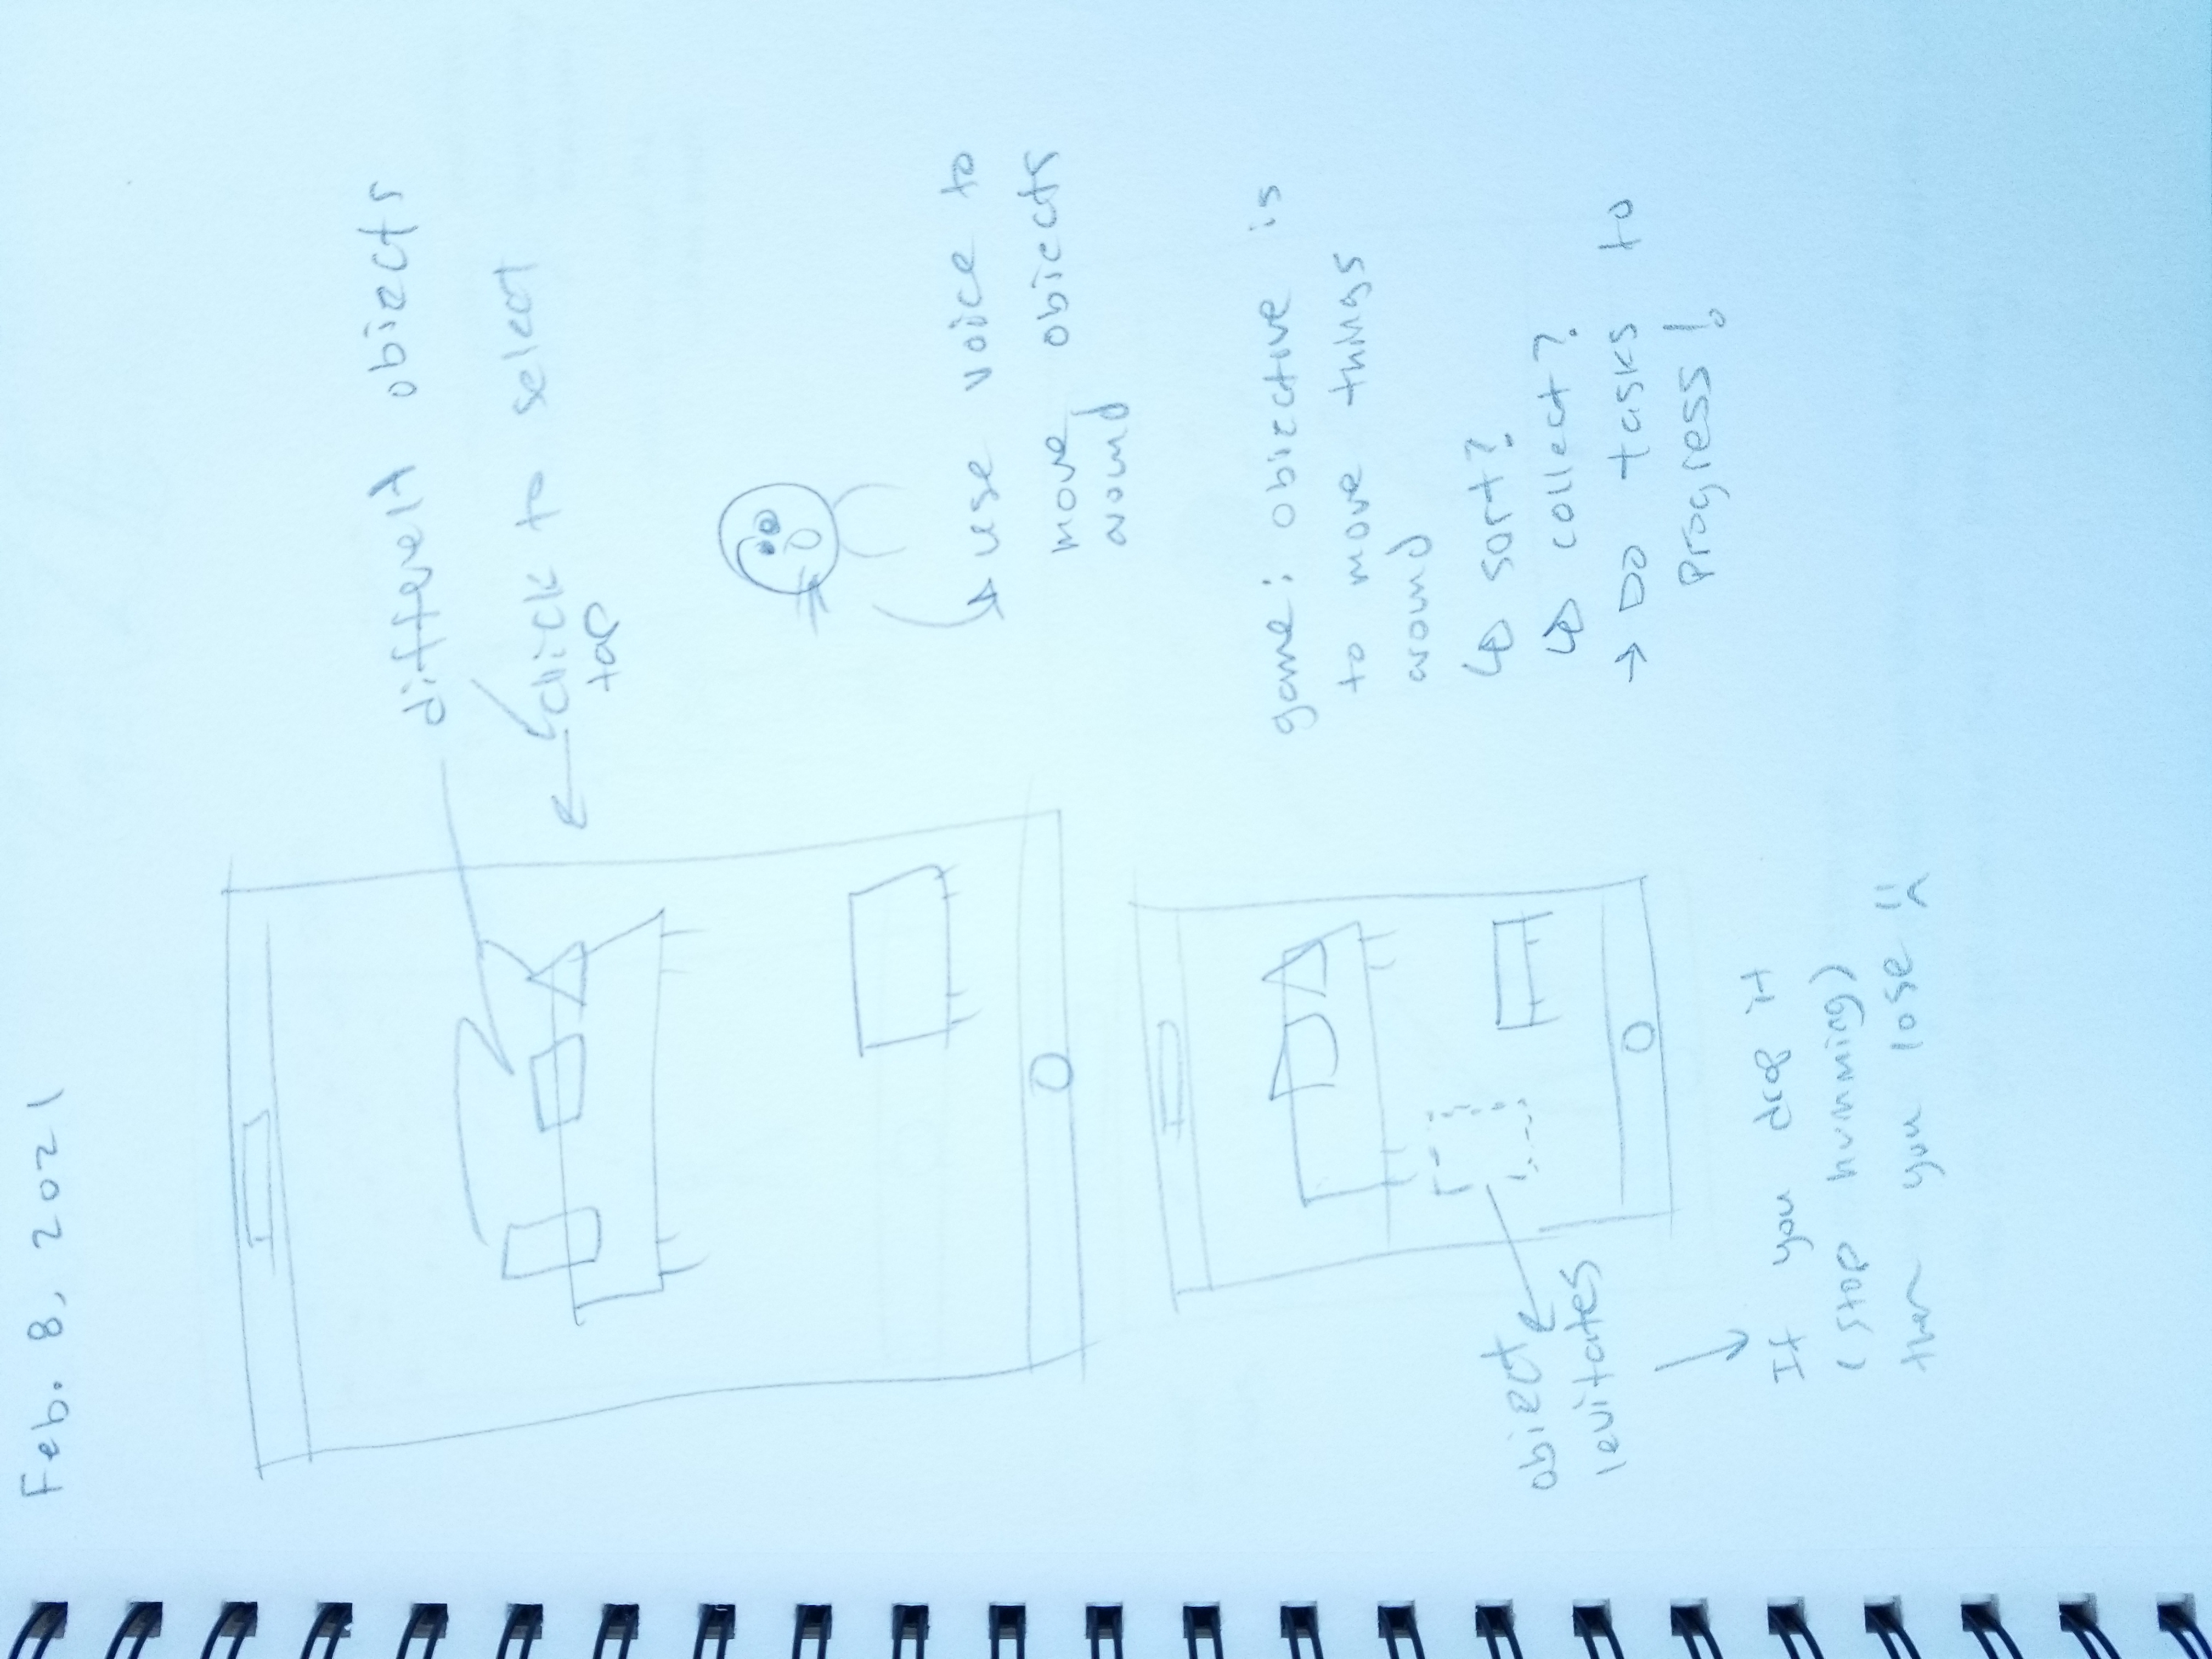 Feb. 8, 2021
different objects
click to select
tap
use voice to
move objects
around
game: objective is
to move things
around
↳ sort?
↳ collect?
→ Do tasks to
progress!
object
levitates
If you drop it
(stop humming)
then you lose